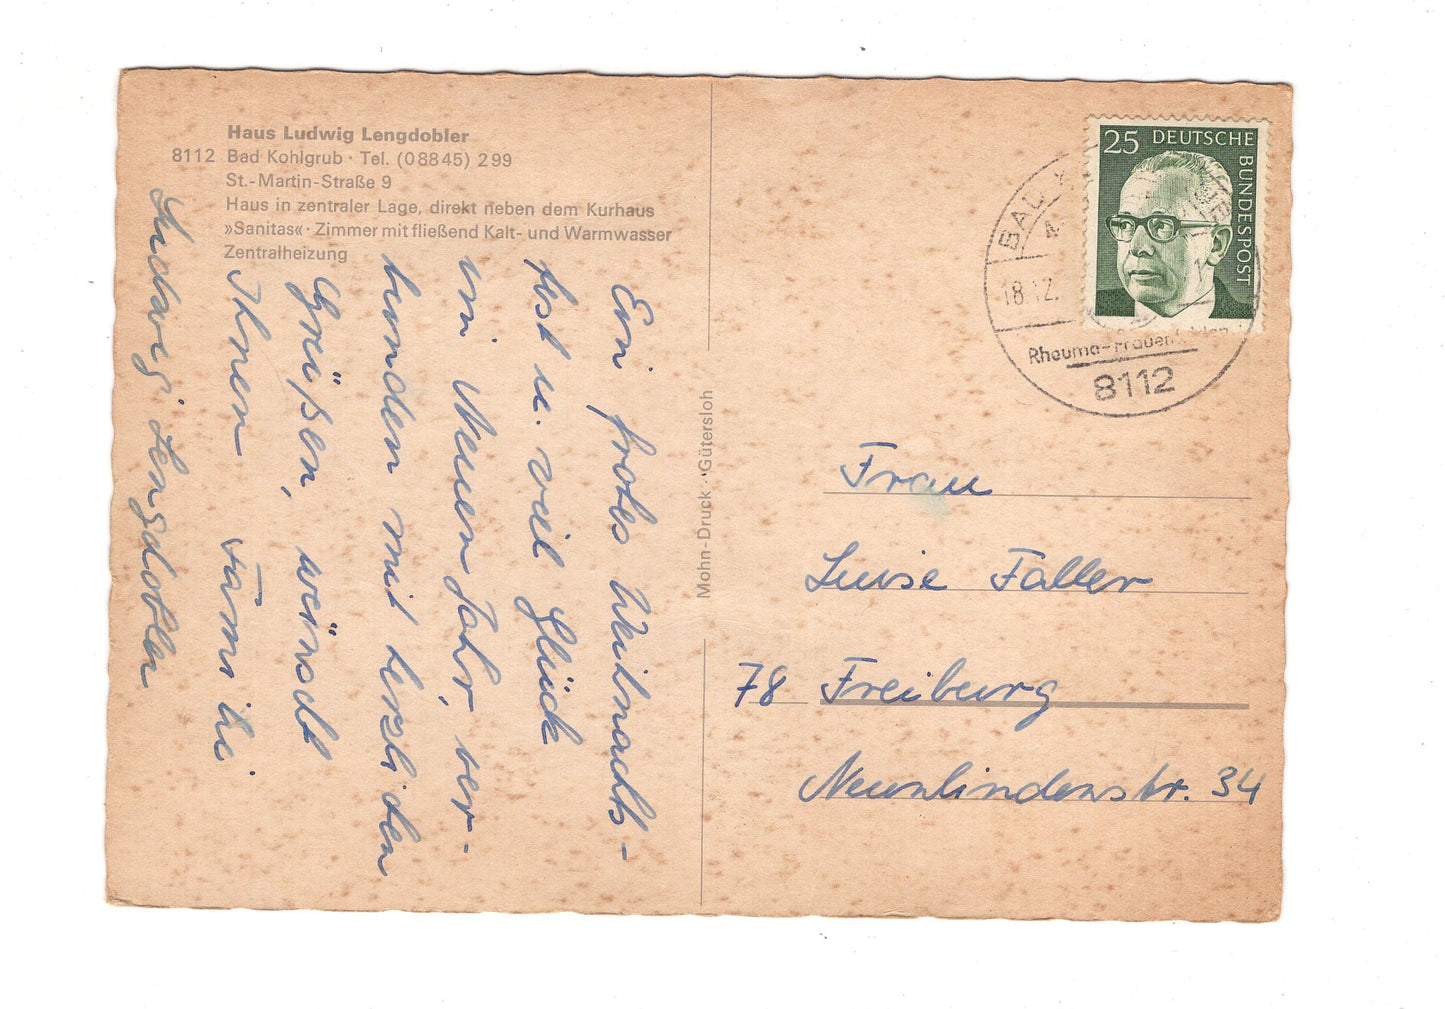 Haus Ludwig Lengdobler
8112 Bad Kohlgrub · Tel. (08845) 299
St.-Martin-Straße 9
Haus in zentraler Lage, direkt neben dem Kurhaus
»Sanitas« · Zimmer mit fließend Kalt- und Warmwasser
Zentralheizung
Ein frohes Weihnachts-
fest u. viel Glück
im Neuen Jahr, ver-
bunden mit herzlichen
Grüßen, wünscht
Ihnen Familie
Ludwig Lengdobler
Mohn-Druck · Gütersloh
25 DEUTSCHE
BUNDESPOST
BAD K
18.12.
Rheuma-Frauen
8112
Frau
Luise Faller
78 Freiburg
Neunlindenstr. 34